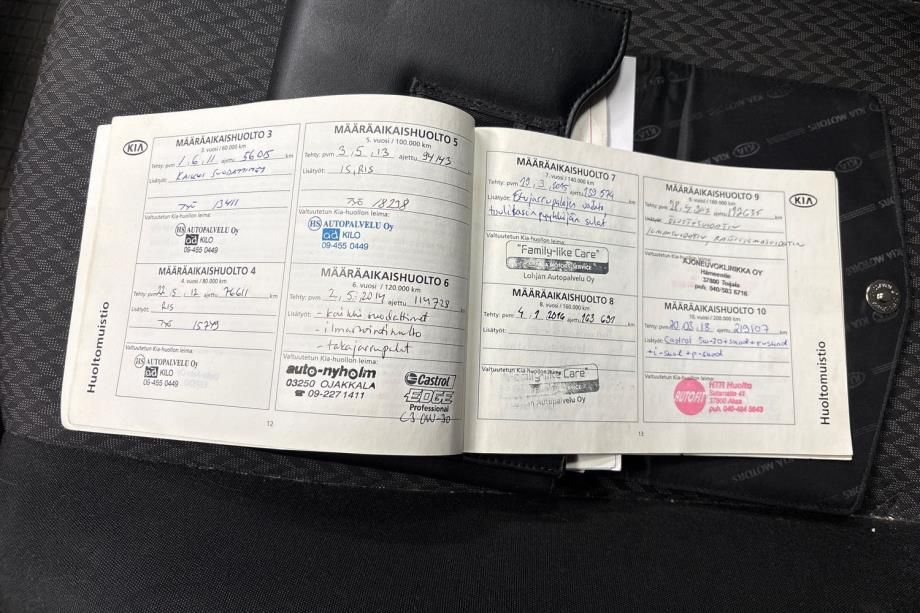 KIA
MÄÄRÄAIKAISHUOLTO 3
3. vuosi / 60.000 km
Tehty: pvm 1.6.11 ajettu 56015 km
Lisätyöt: KAIKKI SUODATTIMET
TYÖ 13411
Valtuutetun Kia-huollon leima:
HS AUTOPALVELU Oy
ad KILO
09-455 0449
MÄÄRÄAIKAISHUOLTO 4
4. vuosi / 80.000 km
Tehty: pvm 22.5.12 ajettu 76611 km
Lisätyöt: RIS
TYÖ 15779
Valtuutetun Kia-huollon leima:
HS AUTOPALVELU Oy
ad KILO
09-455 0449
MÄÄRÄAIKAISHUOLTO 5
5. vuosi / 100.000 km
Tehty: pvm 3.5.13 ajettu 94143 km
Lisätyöt: IS, RIS
TYÖ 18298
Valtuutetun Kia-huollon leima:
HS AUTOPALVELU Oy
ad KILO
09-455 0449
MÄÄRÄAIKAISHUOLTO 6
6. vuosi / 120.000 km
Tehty: pvm 2.5.2014 ajettu 114728 km
Lisätyöt: - kaikki suodattimet
- ilmastointihuolto
- takajarrupalat
Valtuutetun Kia-huollon leima:
auto-nyholm
03250 OJAKKALA
☎ 09-2271411
Castrol
EDGE
Professional
C3 0W-30
Huoltomuistio
12
MÄÄRÄAIKAISHUOLTO 7
7. vuosi / 140.000 km
Tehty: pvm 19.3.2015 ajettu 139 574 km
Lisätyöt: Etujarrupalojen vaihto
tuulilasin pyyhkijän sulat
Valtuutetun Kia-huollon leima:
"Family-like Care"
KIA MOTORS SERVICE
Lohjan Autopalvelu Oy
MÄÄRÄAIKAISHUOLTO 8
8. vuosi / 160.000 km
Tehty: pvm 4.1.2016 ajettu 163 631 km
Lisätyöt:
Valtuutetun Kia-huollon leima:
"Family-like Care"
Lohjan Autopalvelu Oy
KIA
MÄÄRÄAIKAISHUOLTO 9
9. vuosi / 180.000 km
Tehty: pvm ajettu 192635 km
Lisätyöt: ÖLJYNSUODATIN
ILMANSUODATIN, RAITISILMASUODATIN
Valtuutetun Kia-huollon leima:
AJONEUVOKLINIKKA OY
Hämeentie
37800 Toijala
puh. 040/503 6716
MÄÄRÄAIKAISHUOLTO 10
10. vuosi / 200.000 km
Tehty: pvm 20.03.18 ajettu 219107 km
Lisätyöt: Castrol 5w-30+suod+r-suod
+i-suod+p-suod
Valtuutetun Kia-huollon leima:
AUTOFIT
HTR Huolto
37800 Akaa
Huoltomuistio
13